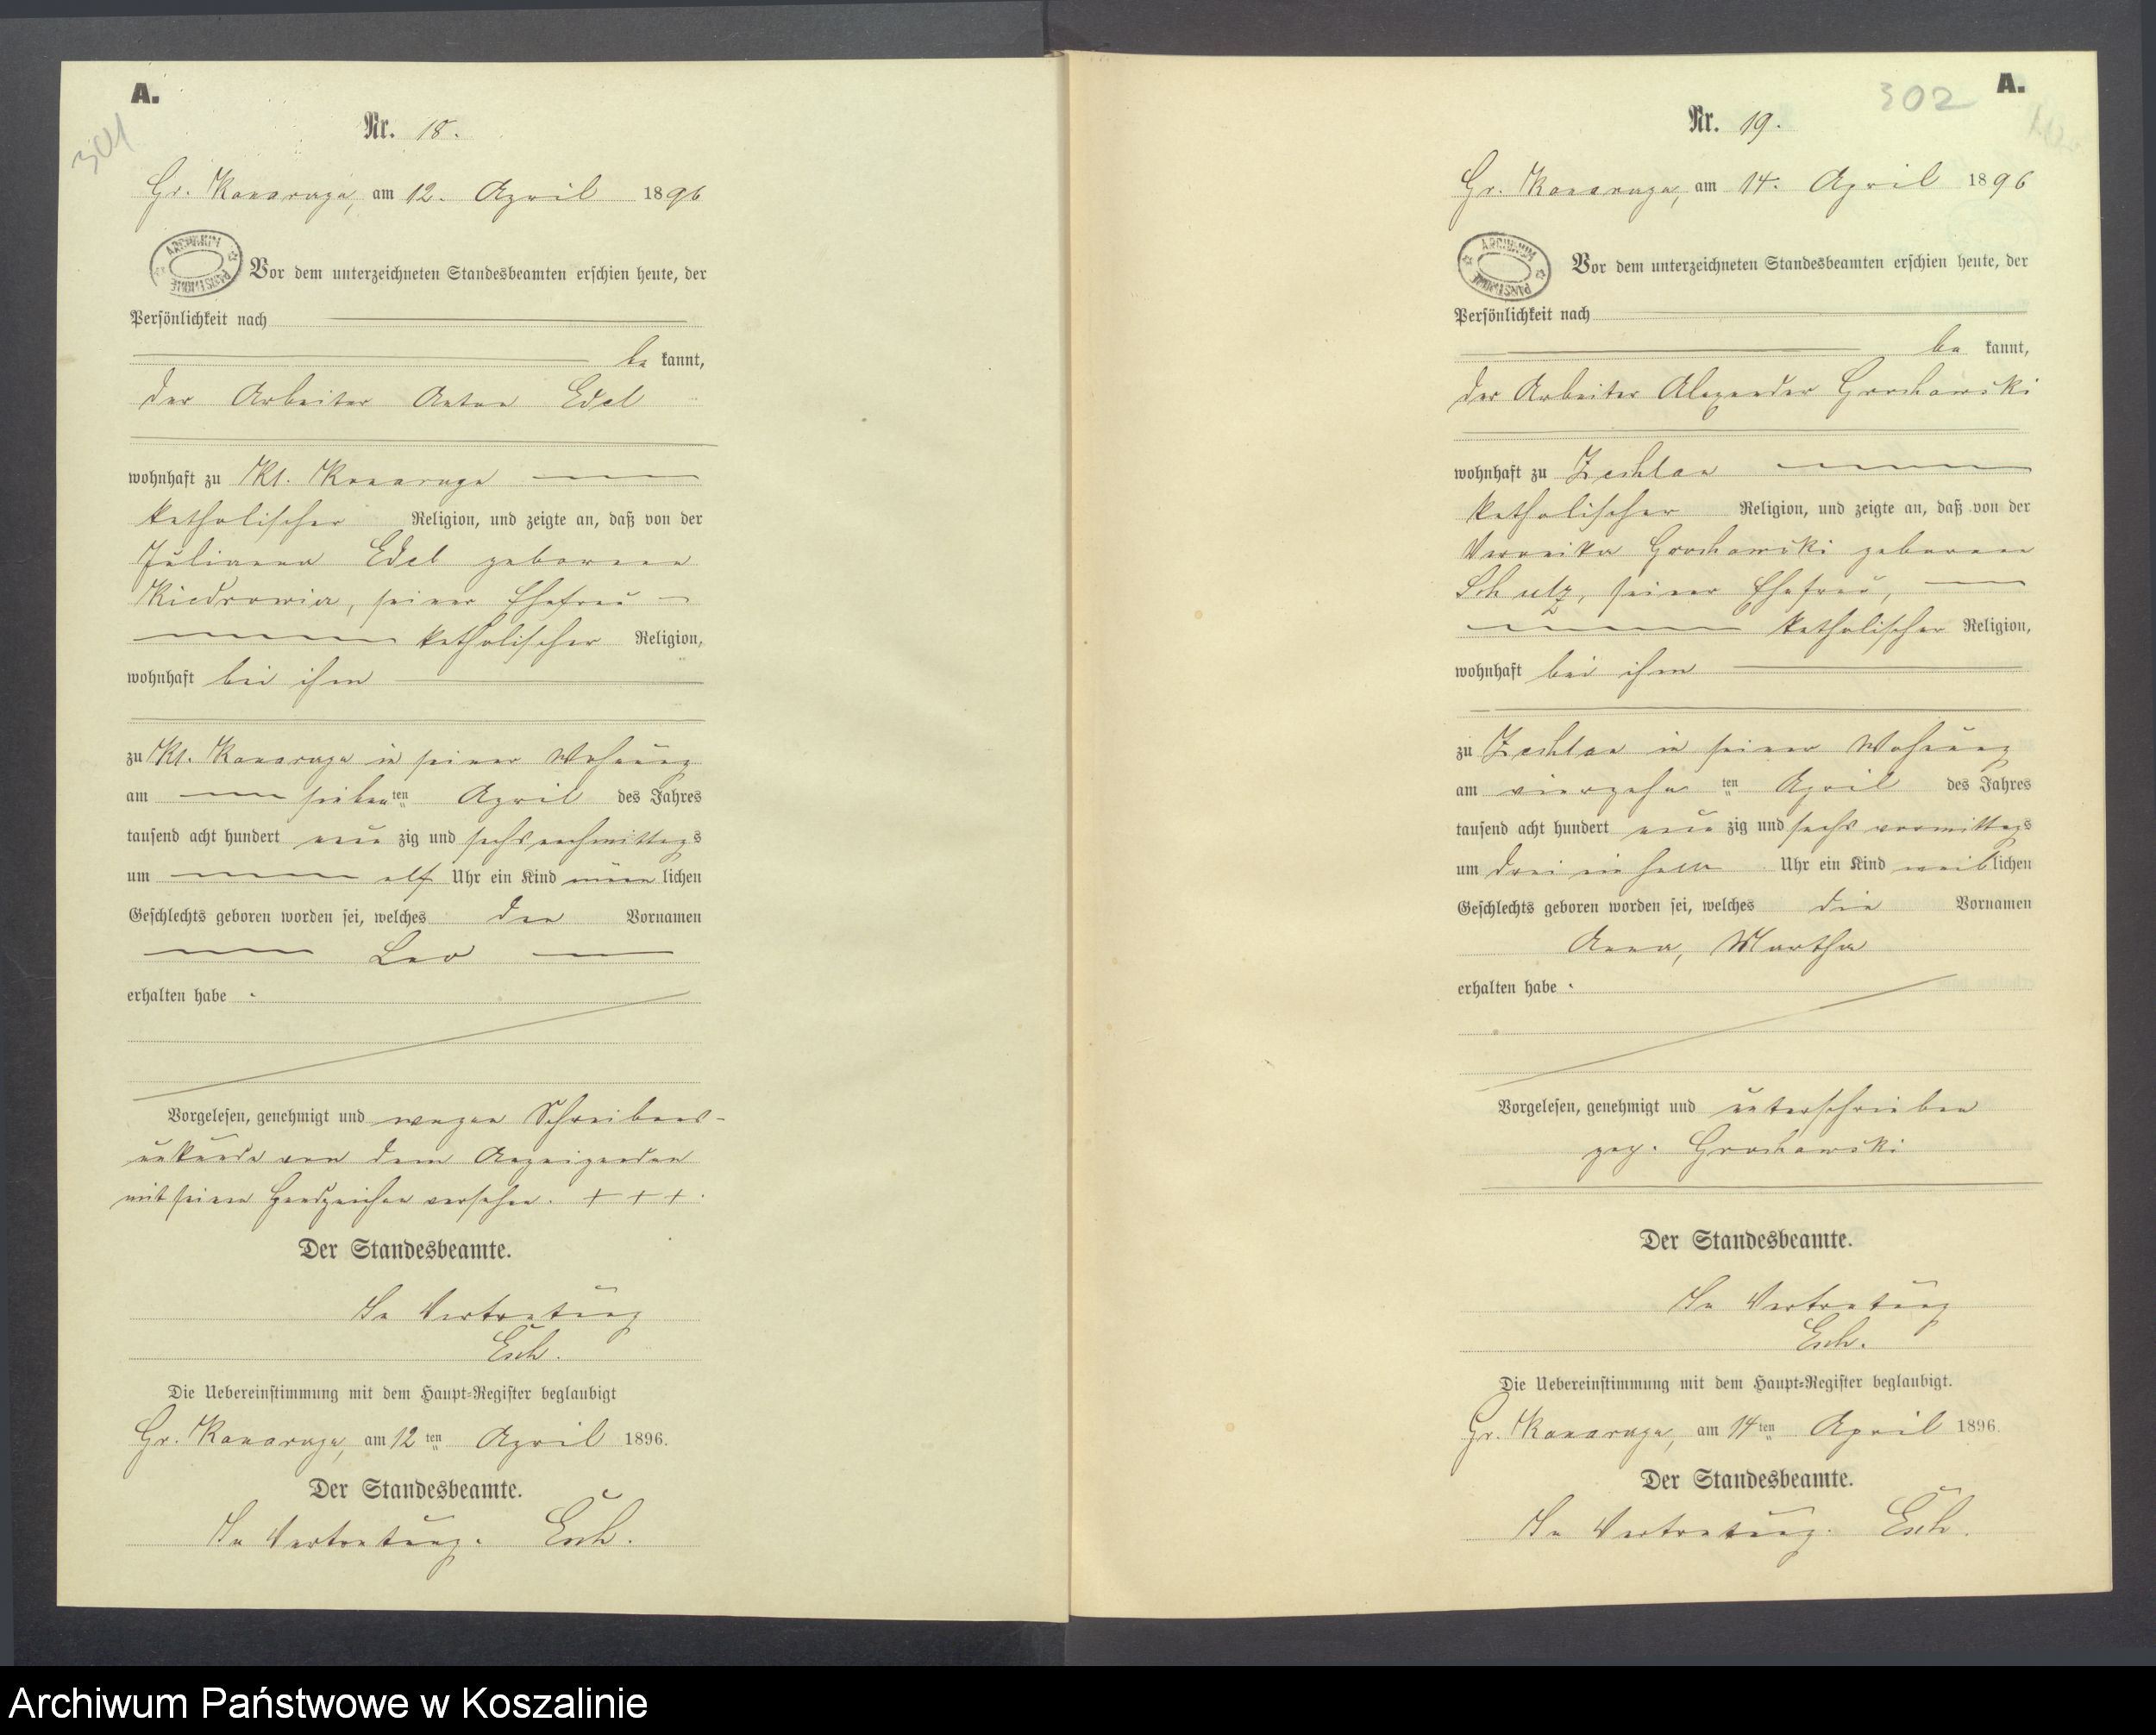 A.
301
Nr. 18.
Gr. Konarczyn, am 12. April 1896
ARCHIWUM PAŃSTWOWE
Vor dem unterzeichneten Standesbeamten erschien heute, der
Persönlichkeit nach
be kannt,
der Arbeiter Anton Edel
wohnhaft zu Kl.
katholischer Religion, und zeigte an, daß von der
Julianna Edel geborenen
seiner Ehefrau
katholischer Religion,
wohnhaft bei ihm
zu Kl. in seiner Wohnung
am sieben ten April des Jahres
tausend acht hundert neun zig und sechs nachmittags
um elf Uhr ein Kind männ lichen
Geschlechts geboren worden sei, welches den Vornamen
Leo
erhalten habe.
Vorgelesen, genehmigt und wegen Schreibens-
unkunde von dem Anzeigenden
mit seinem Handzeichen versehen. + + +.
Der Standesbeamte.
In Vertretung
Esch.
Die Uebereinstimmung mit dem Haupt-Register beglaubigt
Gr. am 12 ten April 1896.
Der Standesbeamte.
In Vertretung. Esch.
302 A.
Nr. 19.
Gr. am 14. April 1896
ARCHIWUM PAŃSTWOWE
Vor dem unterzeichneten Standesbeamten erschien heute, der
Persönlichkeit nach
be kannt,
der Arbeiter Alexander Grochowski
wohnhaft zu Zechlau
katholischer Religion, und zeigte an, daß von der
Veronika Grochowski geborenen
Schulz, seiner Ehefrau,
katholischer Religion,
wohnhaft bei ihm
zu Zechlau in seiner Wohnung
am vierzehn ten April des Jahres
tausend acht hundert neun zig und sechs vormittags
um drei ein halb Uhr ein Kind weib lichen
Geschlechts geboren worden sei, welches die Vornamen
Anna, Martha
erhalten habe.
Vorgelesen, genehmigt und unterschrieben
gez. Grochowski
Der Standesbeamte.
In Vertretung
Esch.
Die Uebereinstimmung mit dem Haupt-Register beglaubigt.
Gr. am 14 ten April 1896.
Der Standesbeamte.
In Vertretung. Esch.
Archiwum Państwowe w Koszalinie